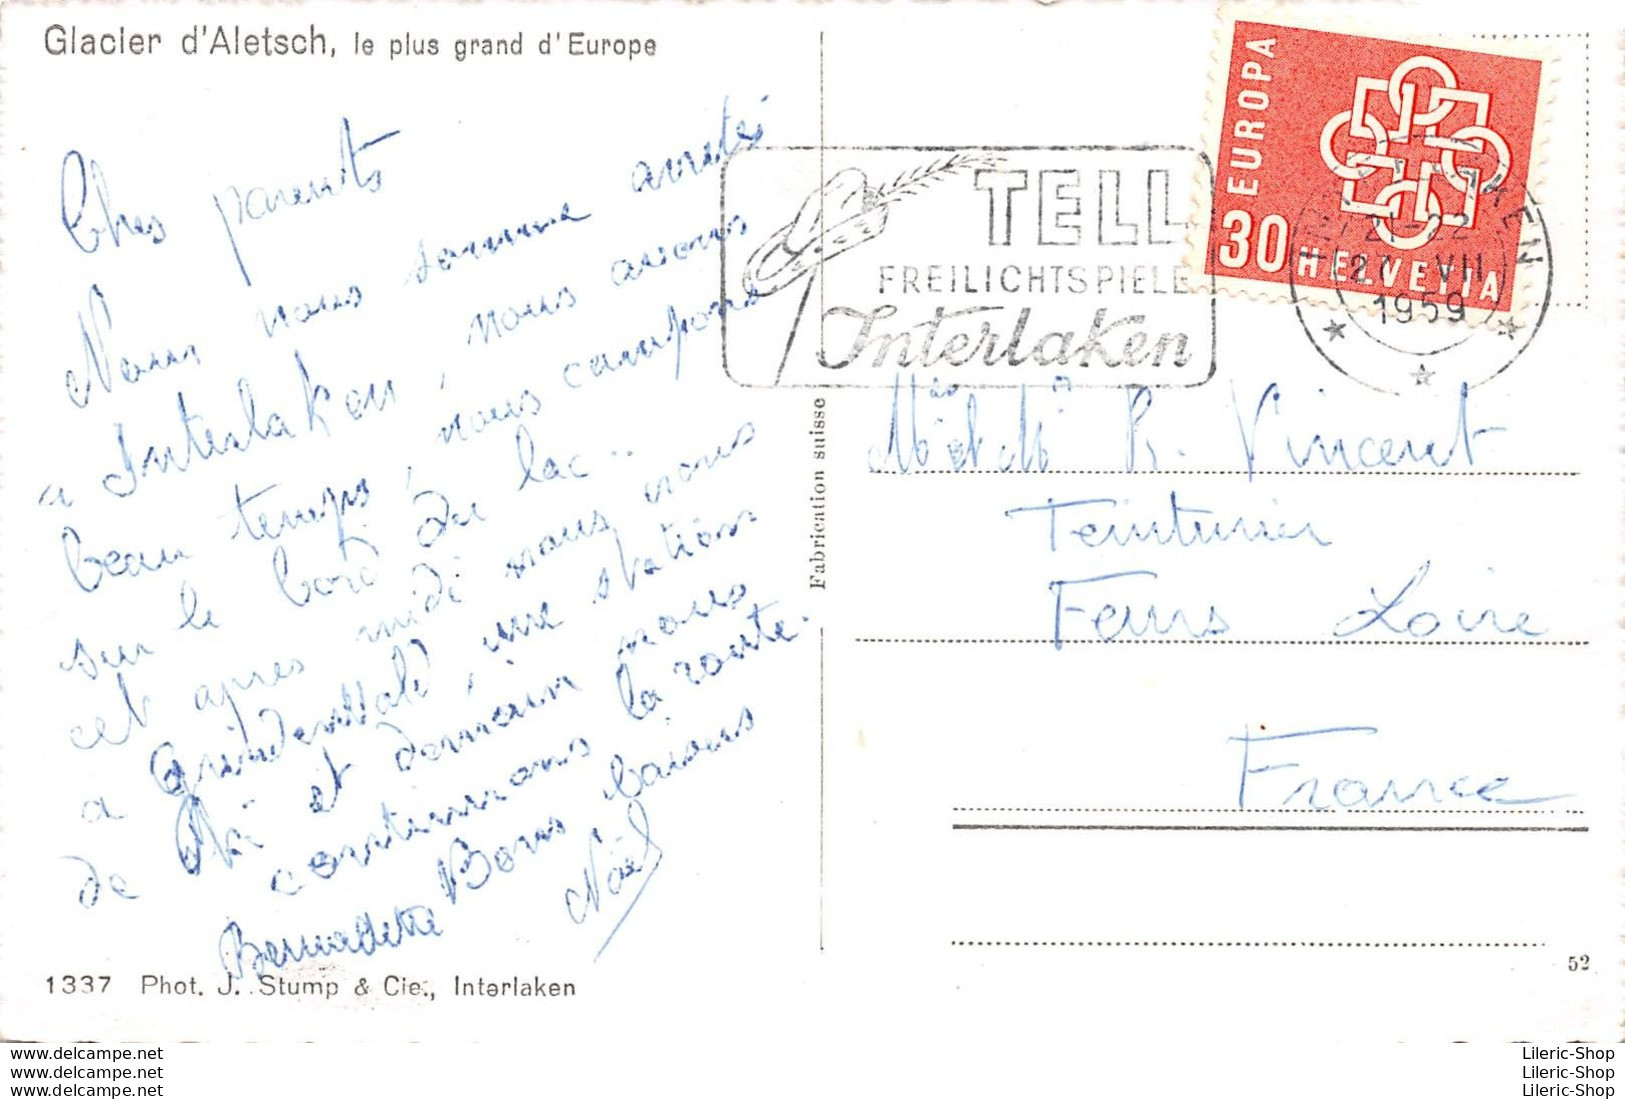 Glacier d'Aletsch, le plus grand d'Europe
Chers parents
Nous nous somme arretés
a Interlaken, nous avons
beau temps, nous campons
sur le bord du lac..
cet apres midi nous irons
a Grindelwald, une station
de ski et demain nous
continuons la route.
Bons baisers
Bernadette Noël
1337 Phot. J. Stump & Cie., Interlaken
Fabrication suisse
TELL
FREILICHTSPIELE
Interlaken
EUROPA
30 HELVETIA
INTERLAKEN
21-22
VII
1959
M et M R. Vincent
Teinturier
Feurs Loire
France
52
www.delcampe.net
www.delcampe.net
www.delcampe.net
Lileric-Shop
Lileric-Shop
Lileric-Shop